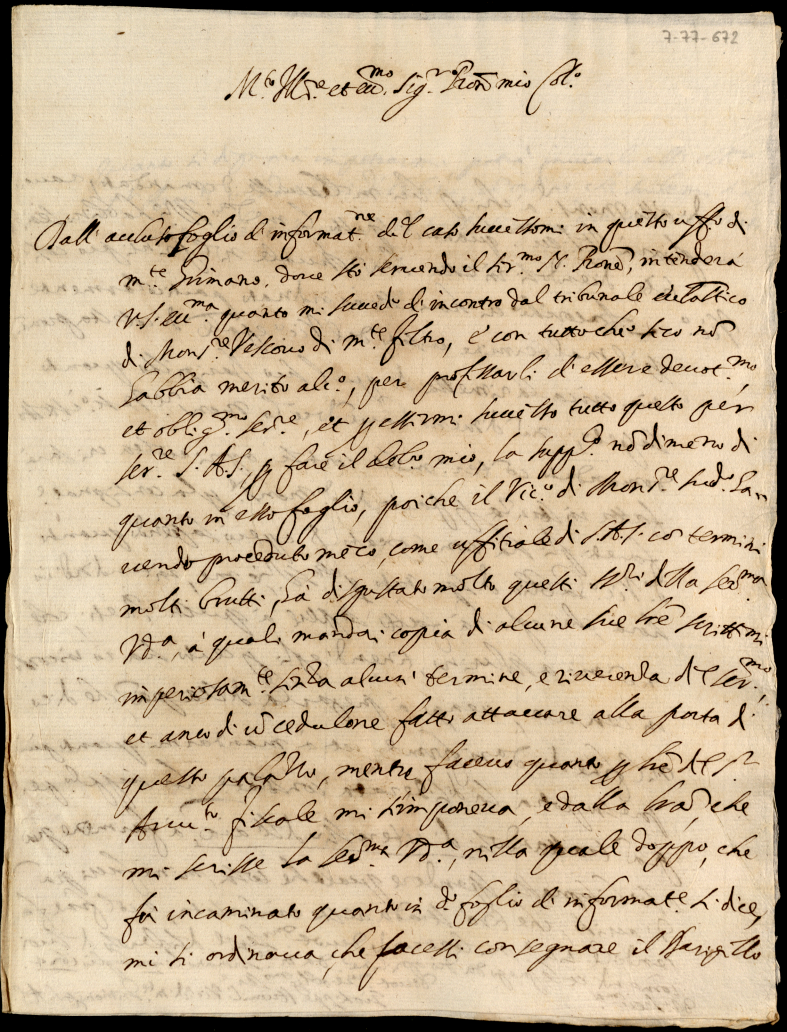 7-77-672
M.to Ill.re et ecc.mo Sig.r Pron mio Col.o
Dall' accluso foglio d'informat.ne del caso successomi in questo uff.o di
m.te Grimano, dove sto servendo il ser.mo S. Prone, intenderà
V.S. ecc.ma quanto mi succede di incontro dal tribunale eccl.astico
di Mons.re Vescovo di m.te feltro, e con tutto che seco nō
habbia merito alc.o, per professarli d'essere devot.mo
et oblig.mo ser.re, et p essermi successo tutto questo per
ser.re S.A.S., p fare il debito mio, la supp.co nōdimeno di
quanto in esso foglio, poiche il Vic.o di Mons.re sud.o ha-
vendo proceduto meco, come uffitiale di S.A.S. co termini
molti brutti, hà disgustato molto questi ss.ri della ser.ma
Vd.a, à quali mandai copia di alcune sue lre scrittemi
imperiosam.te senza alcun' termine, e riverenza del ser.mo,
et anco di ū cedulone fatto attaccare alla porta di
questo palazzo, mentre facevo quanto p lre del S.r
Avv.to fiscale mi s'imponeva, e dalla lrā, che
mi scrisse la ser.ma Vd.a, nella quale doppo, che
fù incaminato quanto in d.o foglio di informat.e si dice,
mi si ordinava, che facessi consegnare il Barigello